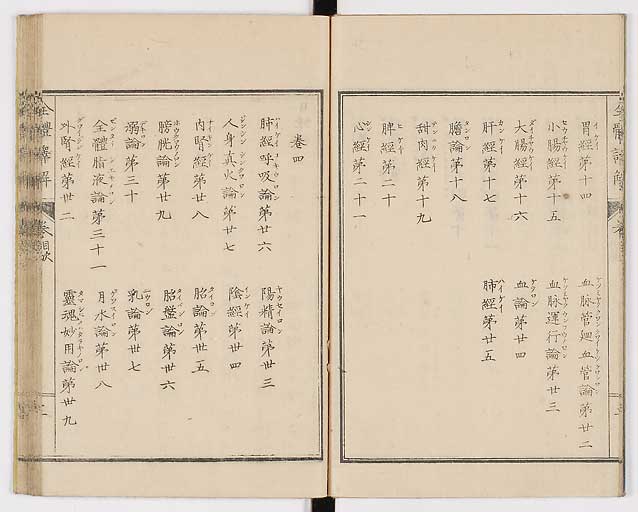 胃經第十四
小腸經第十五
大腸經第十六
肝經第十七
膽論第十八
甜肉經第十九
脾經第二十
心經第二十一
血脉管廻血管論第廿二
血脉運行論第廿三
血論第廿四
肺經第廿五
卷四
肺經呼吸論第廿六
人身真火論第廿七
内腎經第廿八
膀胱論第廿九
溺論第三十
全體脂液論第三十一
外腎經第丗二
陽精論第丗三
陰經第丗四
胎論第丗五
胎盤論第丗六
乳論第丗七
月水論第丗八
靈魂妙用論第丗九